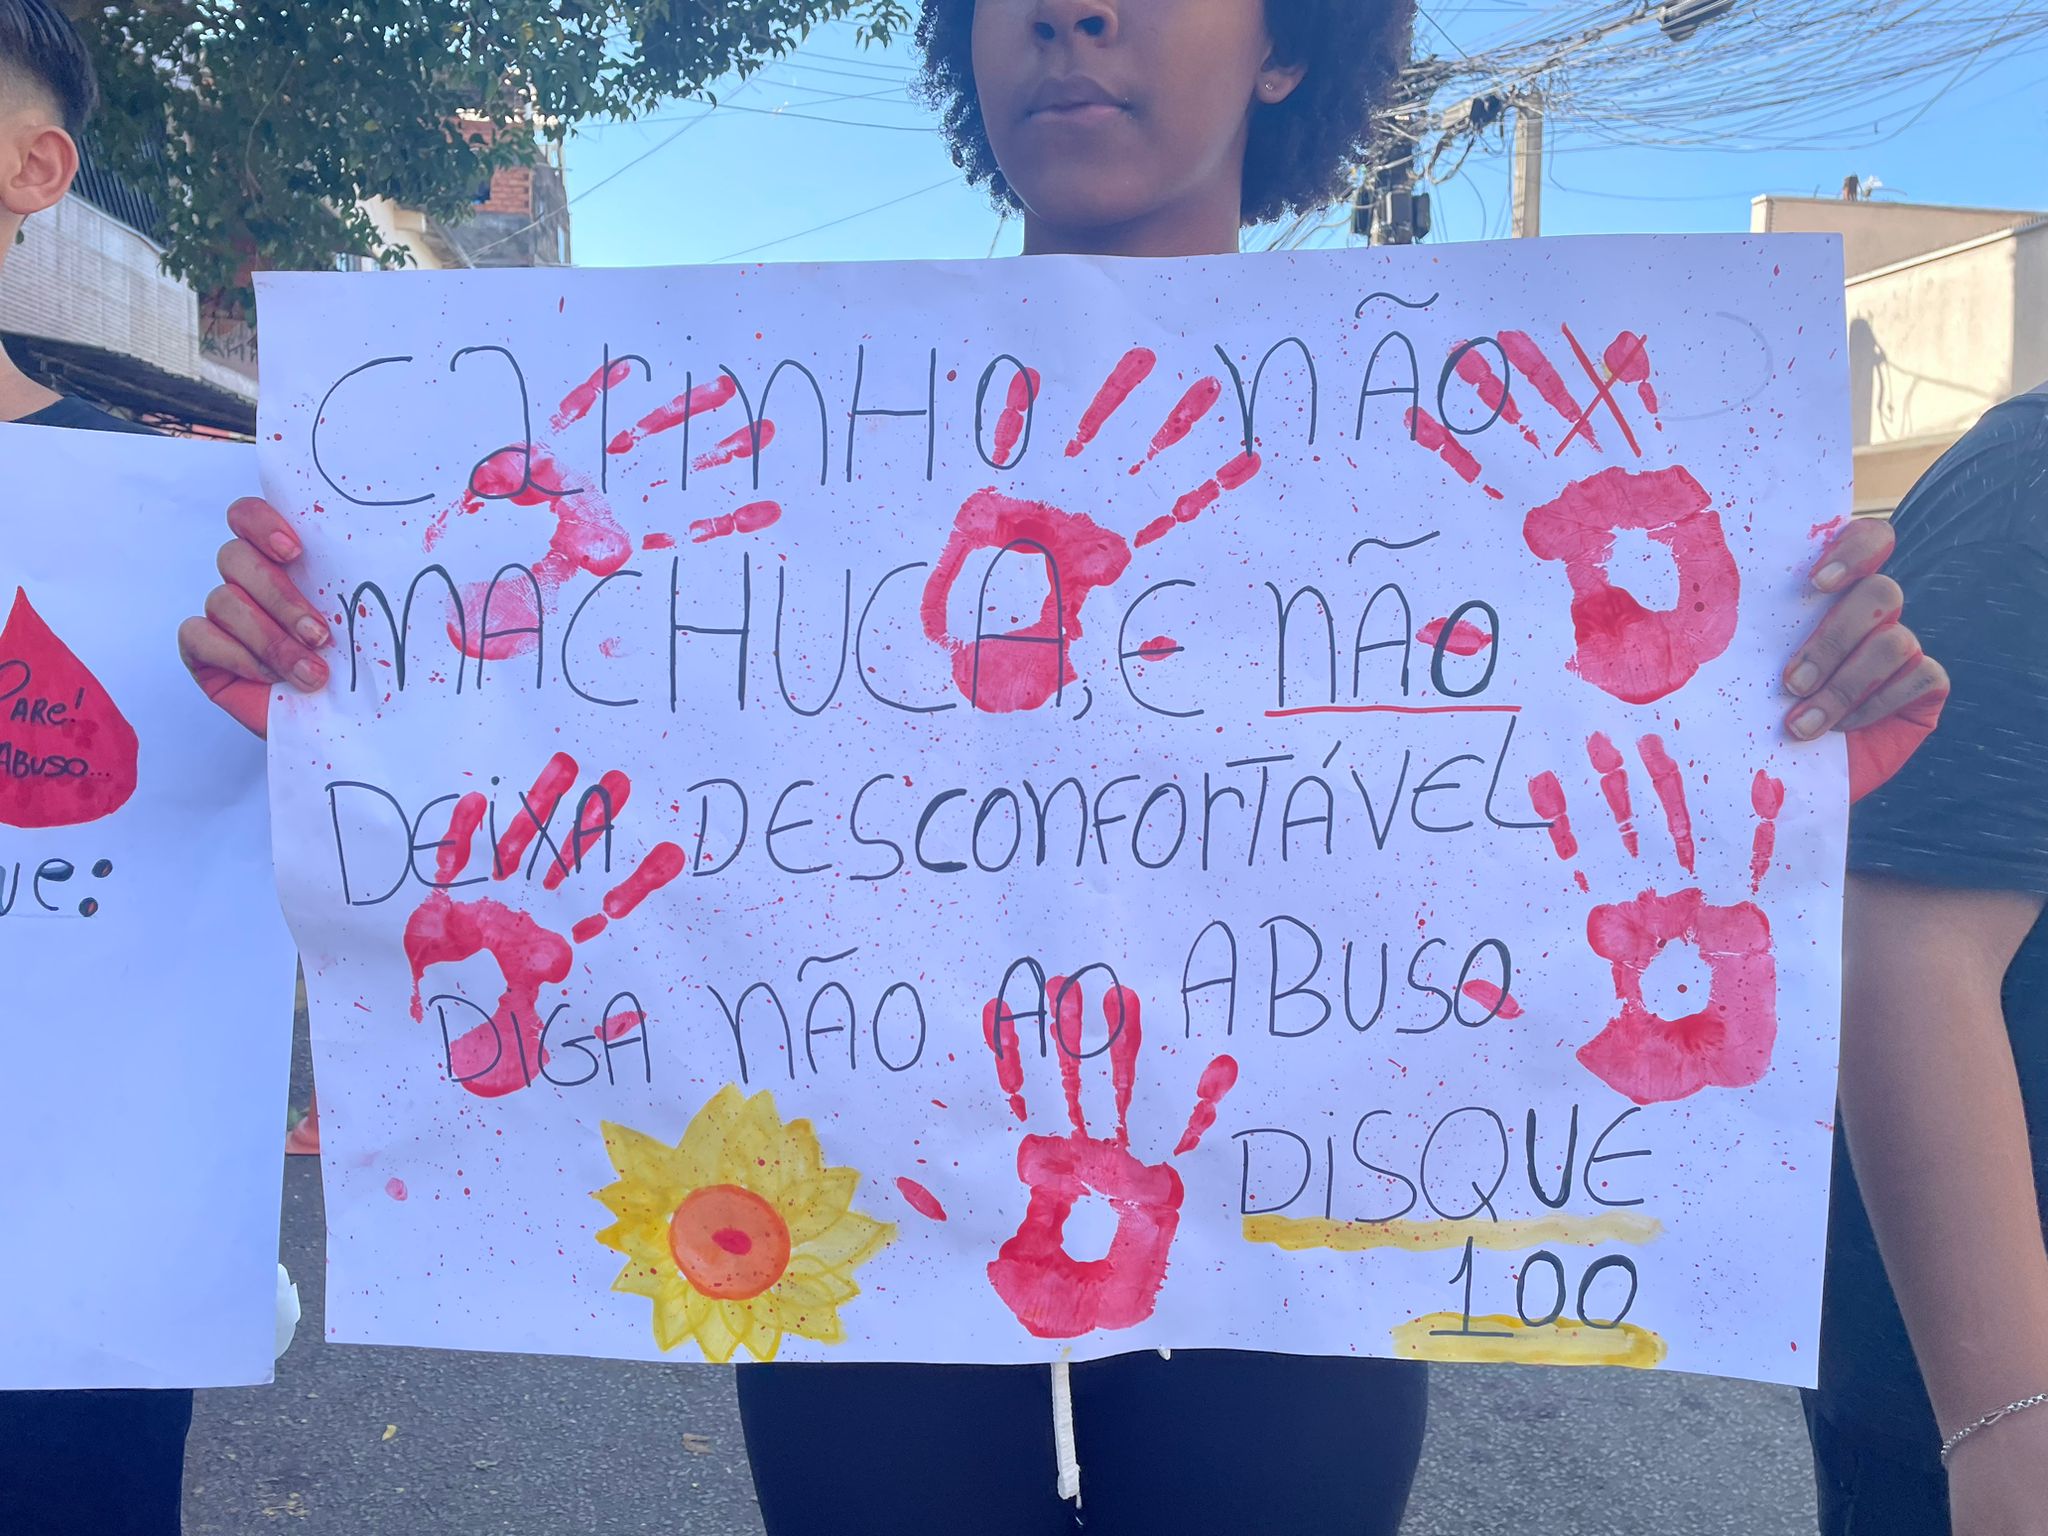 Pare!
ABUSO...
ue:
CarinHo nÃO
MACHUCA, E nÃO
DEiXA DESConFOrTÁVEL
DIGA nÃO AO ABUSO
DiSQUE
100